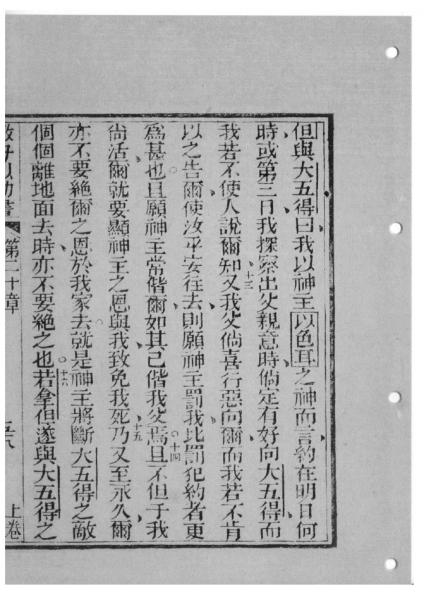 但與大五得曰我以神主以色耳之神而言約在明日何
時或第三日我探察出父親意時倘定有好向大五得而
我若不使人說爾知十三又我父倘喜行惡向爾而我若不肯
以之告爾使汝平安往去則願神主罰我比罰犯約者更
爲甚也且願神主常偕爾如其已偕我父焉十四且不但于我
尙活爾就要顯神主之恩與我致免我死十五乃又至永久爾
亦不要絕爾之恩於我家去就是神主將斷大五得之敵
個個離地面去時亦不要絕之也十六若拿但遂與大五得之
第二十章
上卷